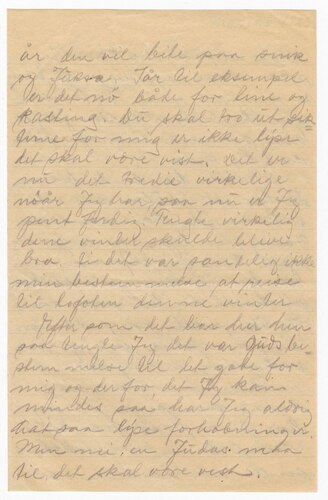 år den vil bite paa snik
og Tikva. I år til eksempel
er det nö både for line og
Kasting. Du skal tro ut sik
tene for mig er ikke lyse
det skal være vist. Det er
nu det tredie virkelige
nöår Jeg har saa nu er Jeg
pent ferdig. Tengte virkelig
denne vinter skulde bleve
bra. Ti det var san belig ikke
min bestem melse at reise
til Lofoten denne vinter
Efter som det bar her hen
saa tengte Jeg det var Guds be
stem melse til det gode for
mig og der for, det Jeg kan
mindes saa har Jeg aldrig
hat saa lyse forhobninger.
Men nei, en Judas maa
til, det skal være vist.